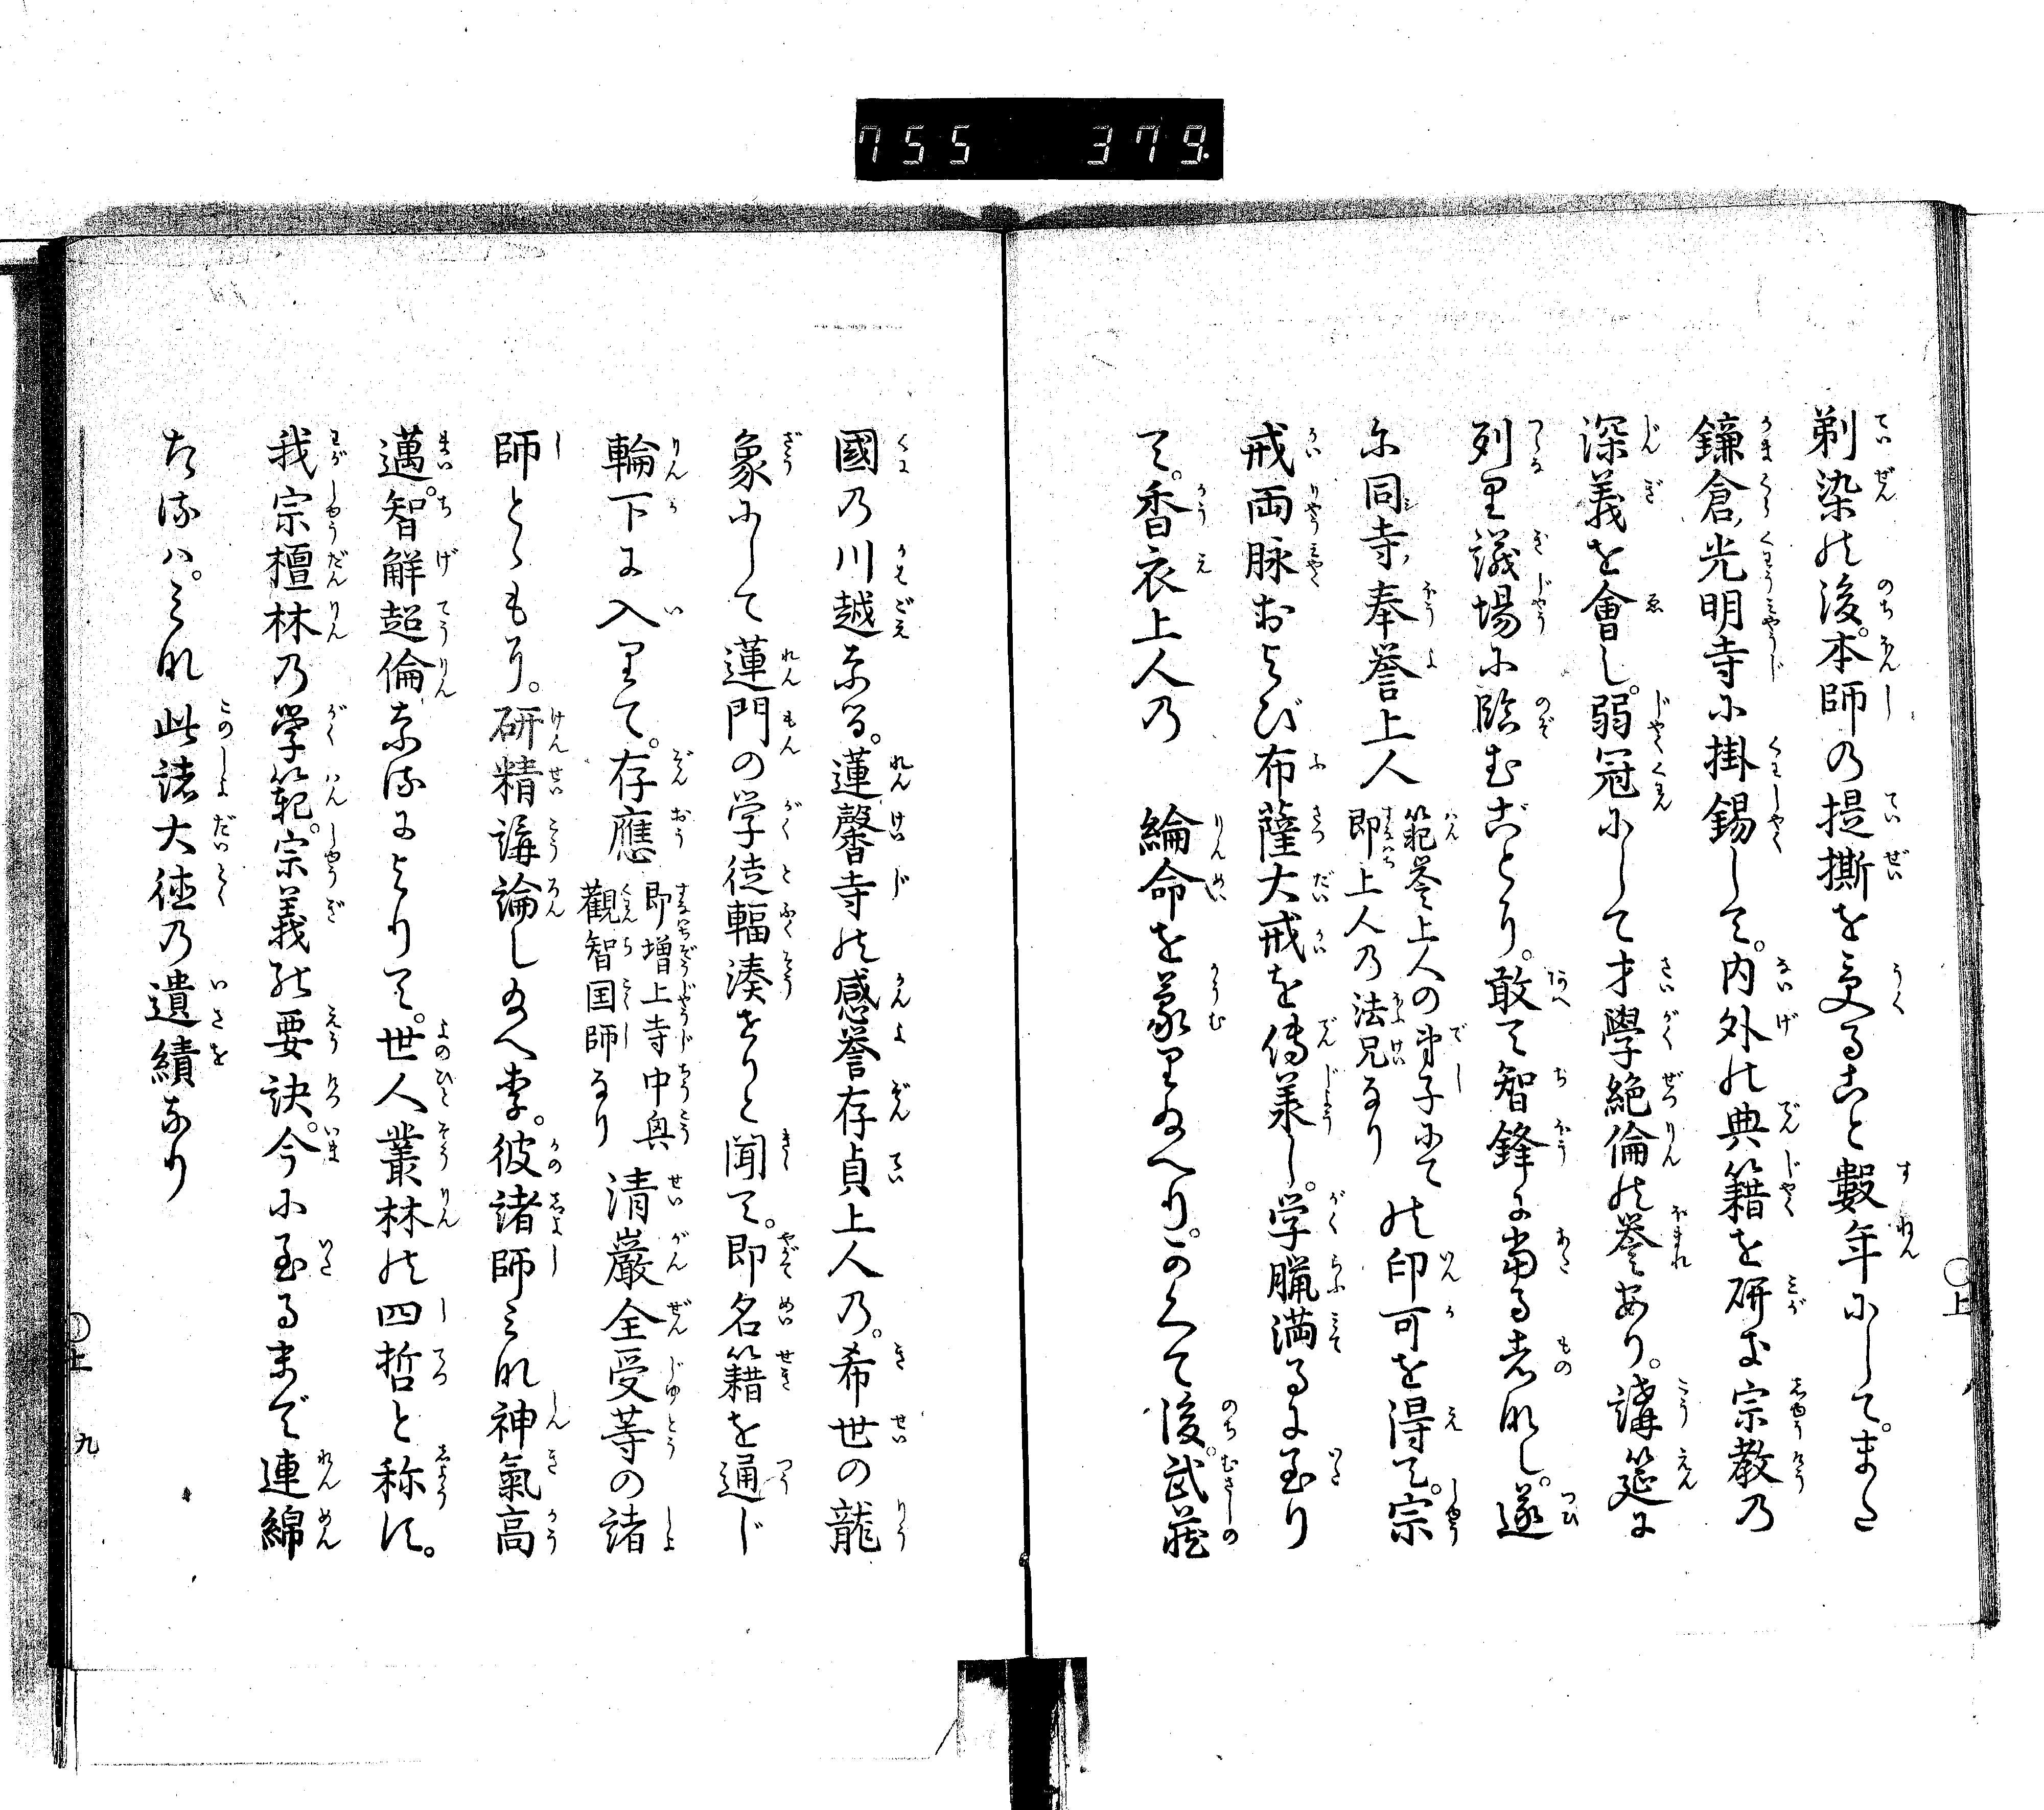 755 379.
剃染の後。本師の提撕を受ること數年にして。また
鎌倉光明寺に掛錫して。内外の典籍を研き宗教の
深義を會し。弱冠にして才學絶倫の誉あり。講筵に
列り議場に臨むごとり。敢て智鋒に當る者なし。遂
に同寺奉誉上人
範誉上人の弟子にて
即上人の法兄なり
の印可を得て。宗
戒両脉および布薩大戒を傳承し。学臘満るに至り
て。香衣上人の 綸命を蒙り給へり。かくて後。武蔵
〇上
國の川越なる。蓮馨寺の感誉存貞上人の。希世の龍
象にして蓮門の学徒輻湊せりと聞て。即名籍を通じ
輪下に入りて。存應
即増上寺中興
觀智国師なり
清巖全受等の諸
師とゝもに。研精講論し給へり。彼諸師みな神氣高
邁。智解超倫なるによりて。世人叢林の四哲と称す。
我宗檀林の学範。宗義の要訣。今に至るまで連綿
たるハ。みな此諸大徳の遺績なり
〇上 九